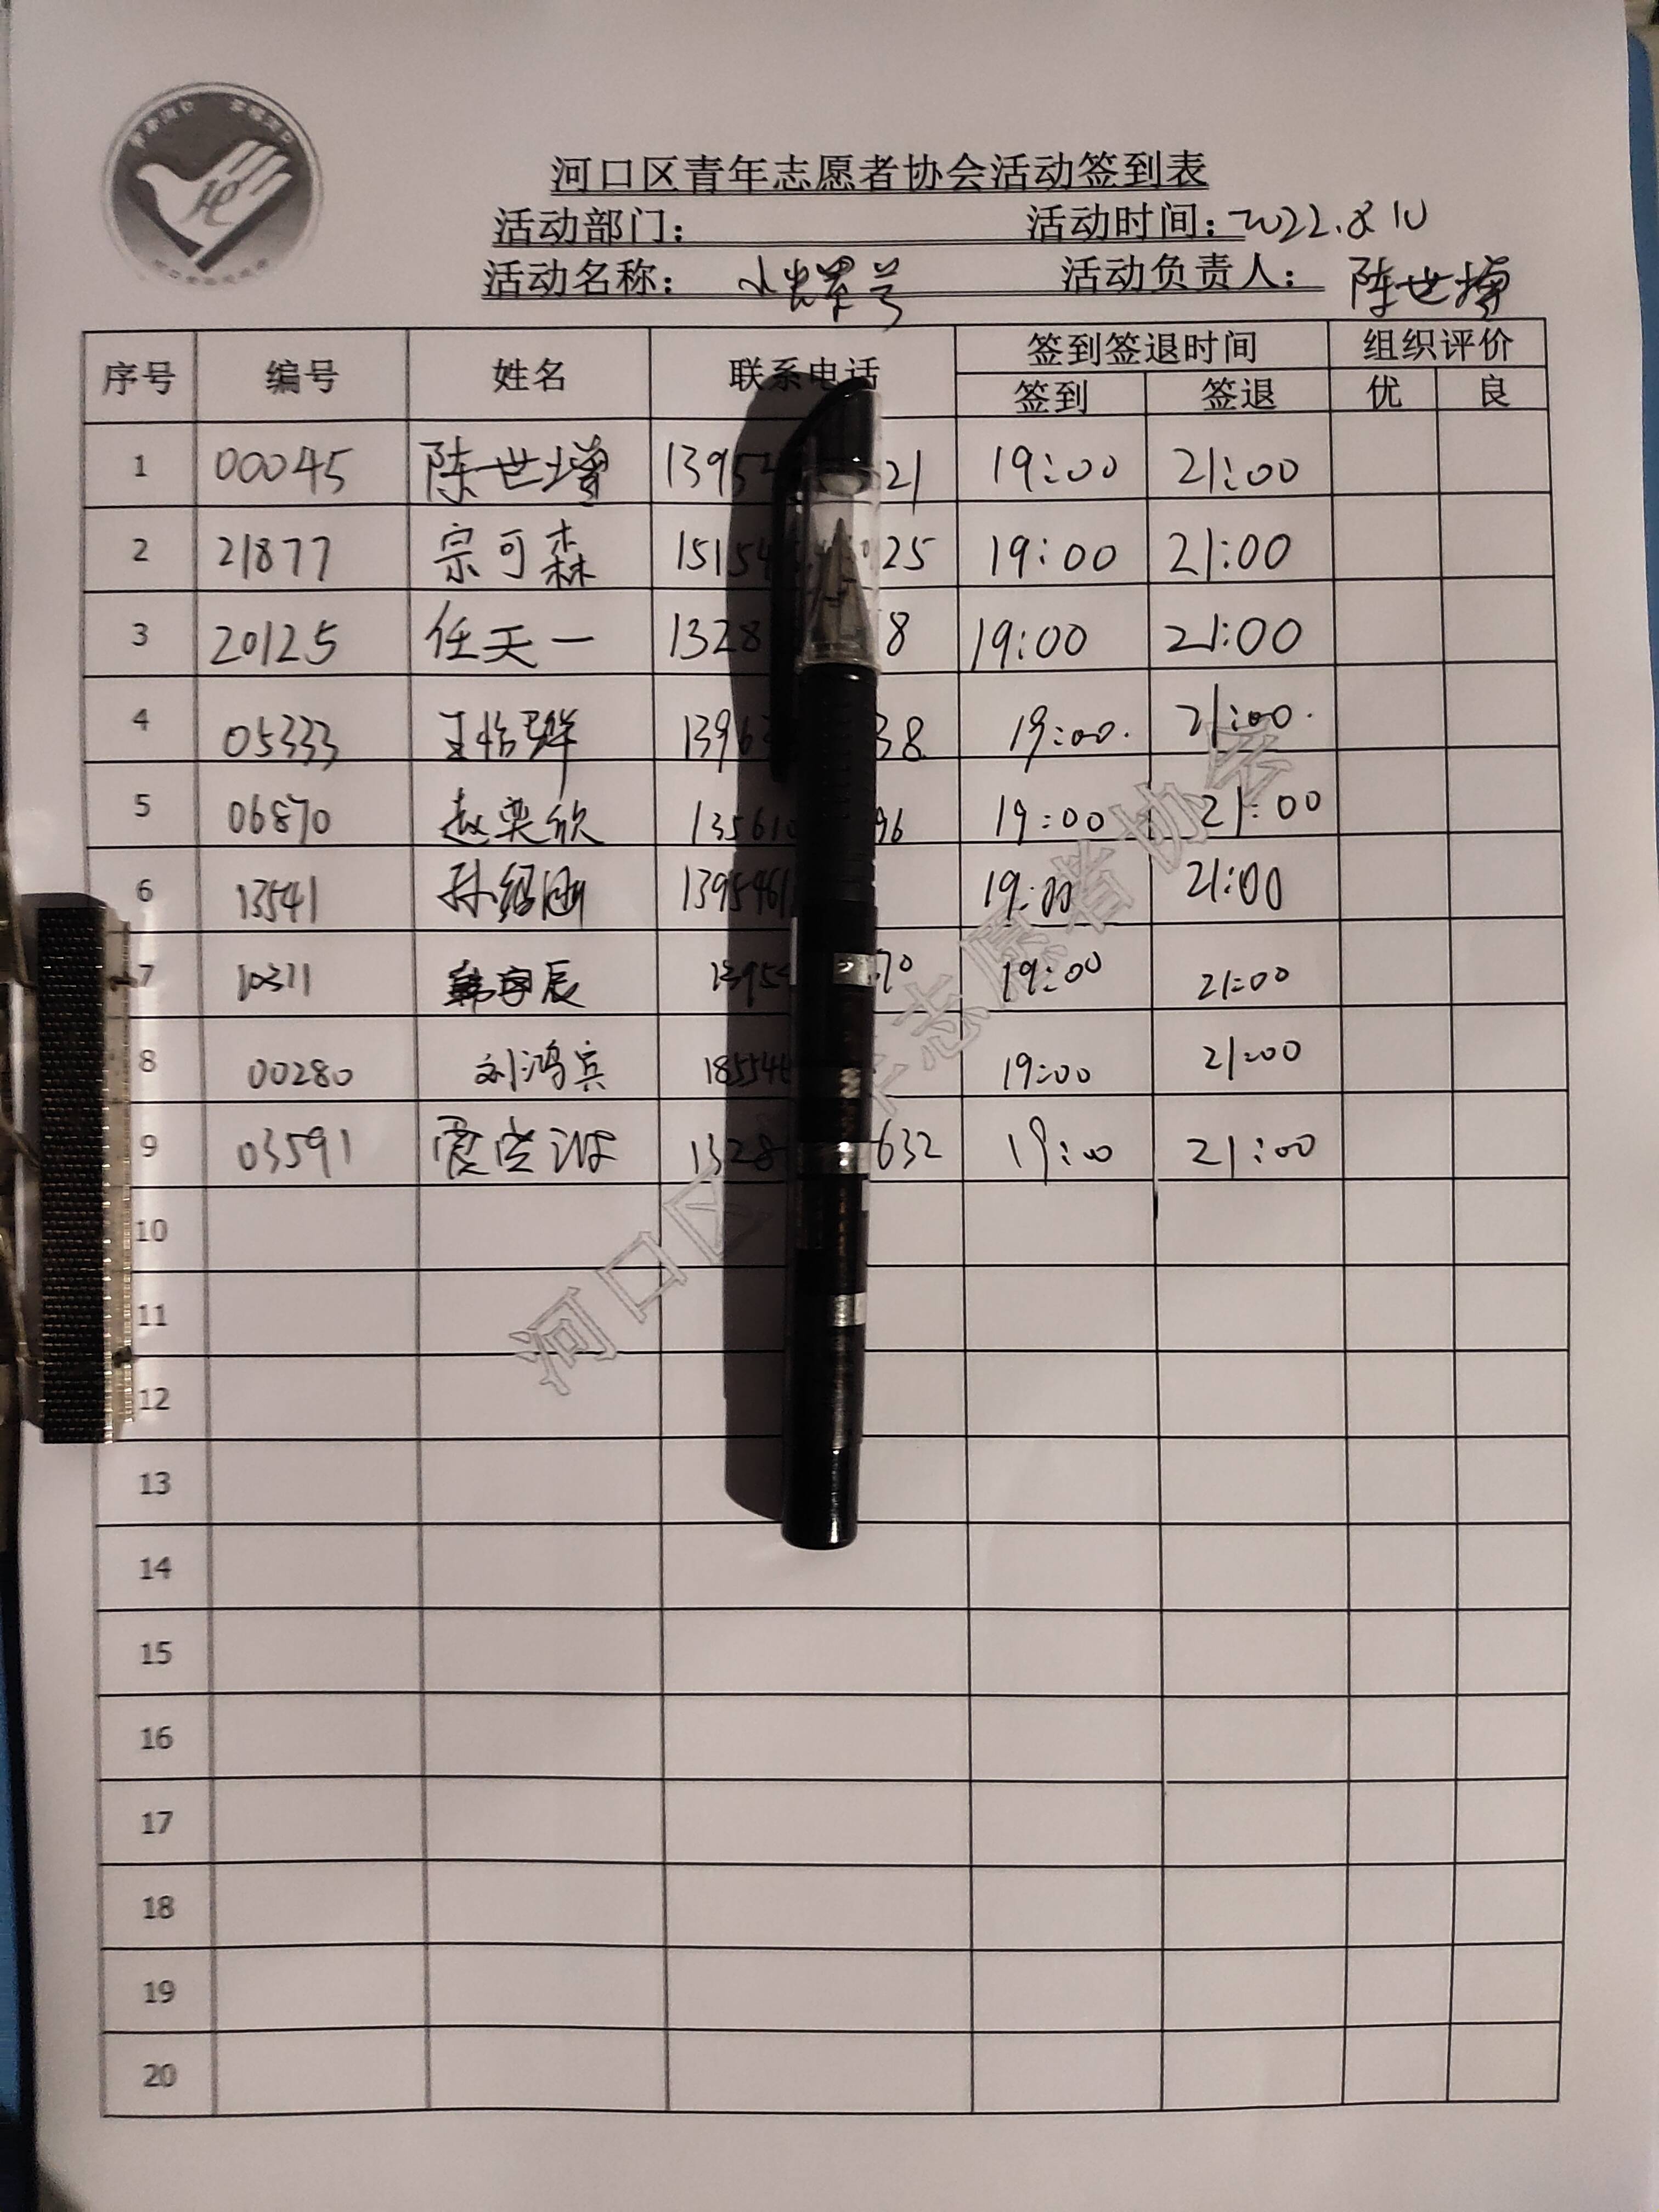 河口区青年志愿者协会活动签到表
活动部门： 活动时间：2022.8 10
活动名称： 活动负责人：陈世增
序号 编号 姓名 联系电话 签到签退时间 组织评价
签到 签退 优 良
1 00045 陈世增 1395 21 19:00 21:00
2 21877 宗可森 15154 25 19:00 21:00
3 20125 任天一 1328 8 19:00 21:00
4 05333 王怡 1396 38 19:00. 21:00.
5 06870 赵奕欣 13561 96 19:00 21:00
6 13541 孙绍涵 1395461 19:00 21:00
7 10311 韩宇辰 1395 70 19:00 21:00
8 00280 刘鸿宾 18554 19:00 21:00
9 03591 1328 632 19:00 21:00
10
11
12
13
14
15
16
17
18
19
20
河口区 志愿者协会